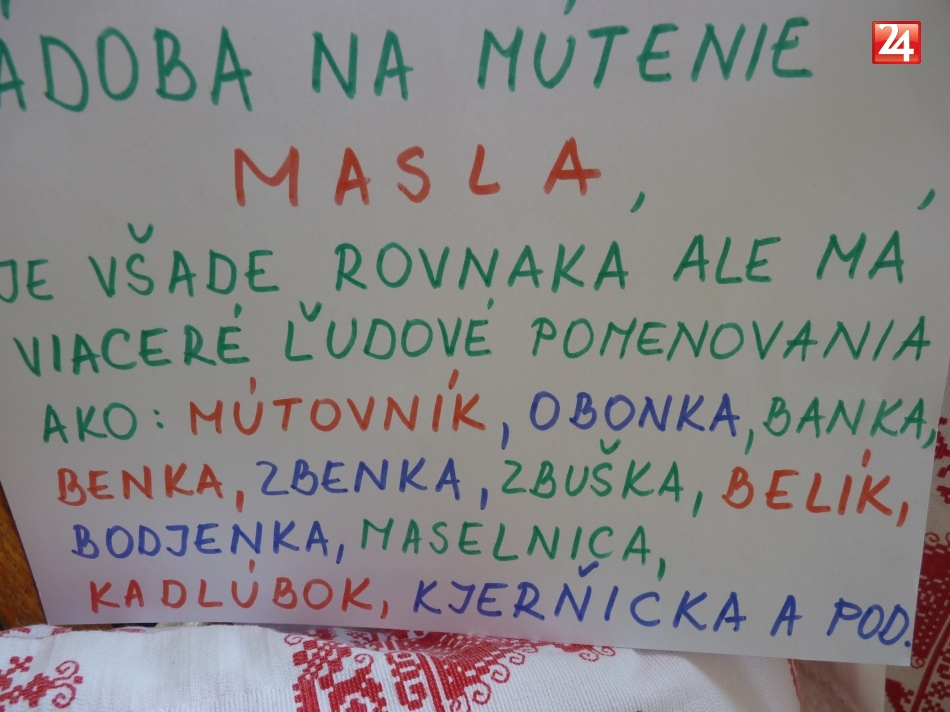 ADOBA NA MÚTENIE
MASLA,
JE VŠADE ROVNAKA ALE MÁ
VIACERÉ ĽUDOVÉ POMENOVANIA
AKO: MÚTOVNÍK, OBONKA, BANKA,
BENKA, ZBENKA, ZBUŠKA, BELÍK,
BODJENKA, MASELNICA,
KADLÚBOK, KJERŇICKA A POD.
24